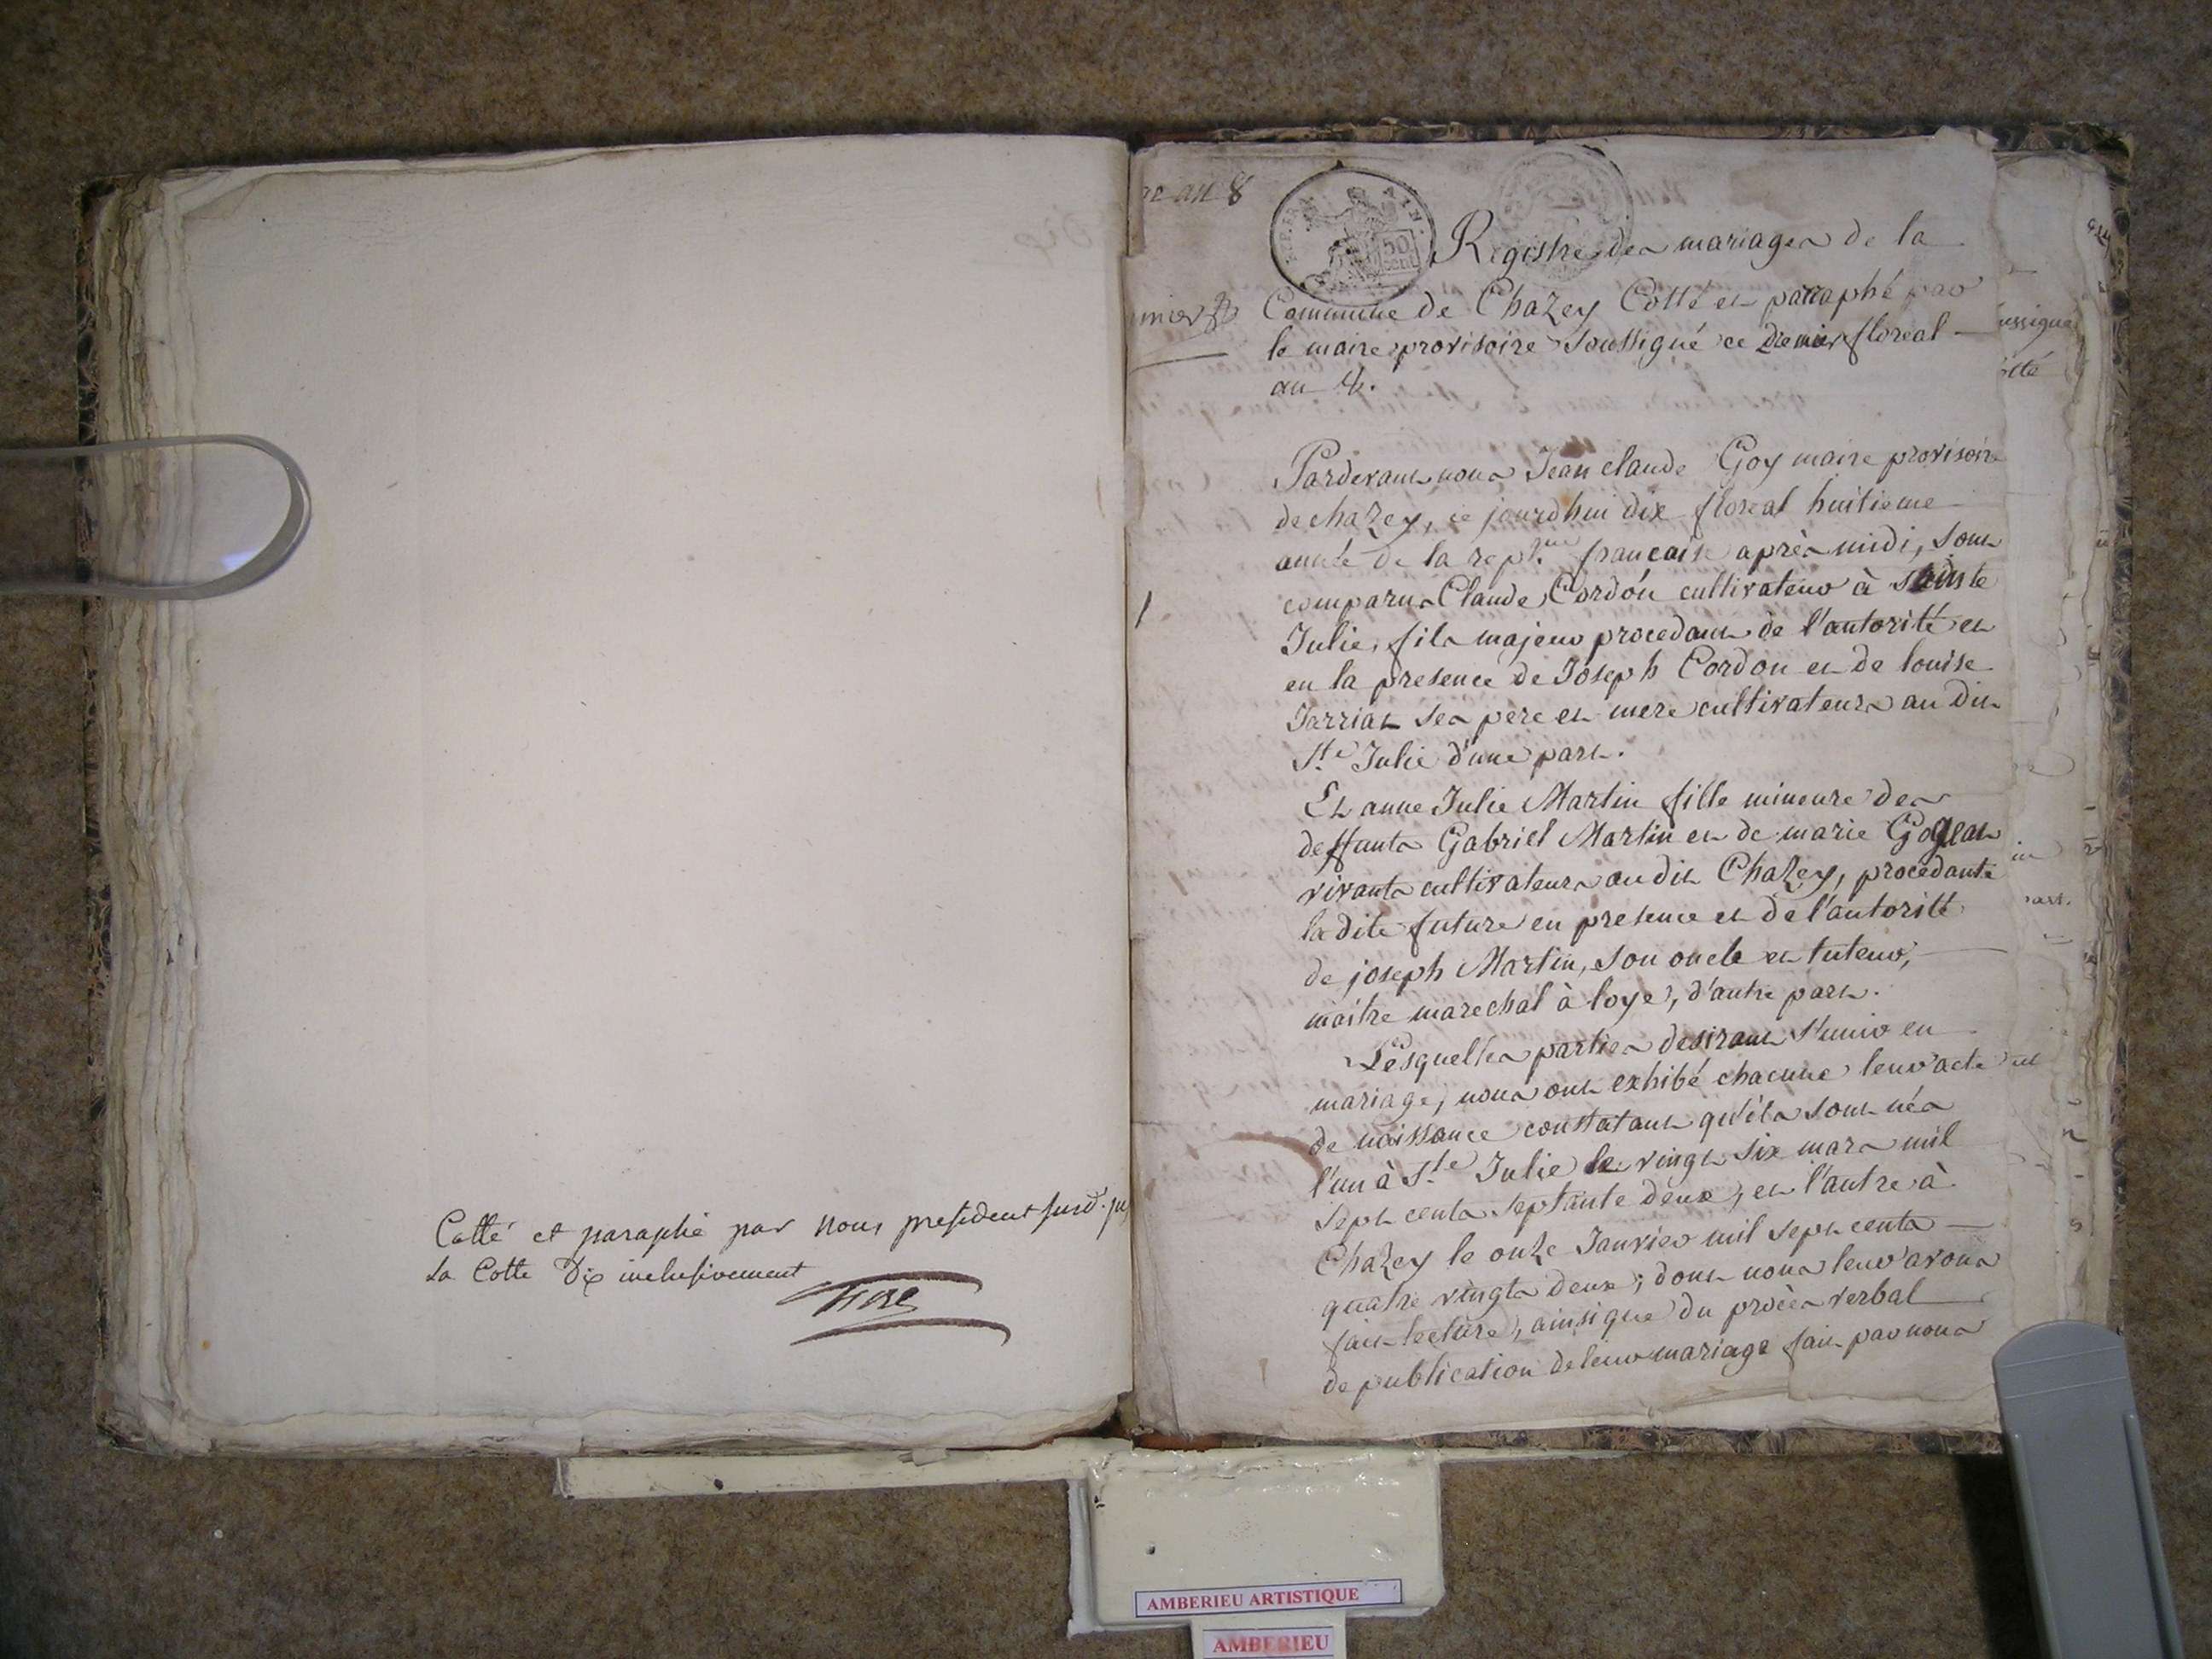 Cotté et paraphé par nous president susd. 
la Cotte dix inclusivement
an 8
REP. FRA
50
cent
Registre des mariages de la
Commune de Chazey Cotté et paraphé par
le maire provisoire soussigné ce floreal
an 8.
Pardevant nous Jean claude Goy maire provisoire
de chazey, ce jourdhui dix floreal huitieme
année de la rep.que française après midi, sont
comparus Claude Cordon cultivateur à sainte
Julie, fils majeur procedant de l'autorité et
en la presence de Joseph Cordon et de louise
Jarriat ses pere et mere cultivateurs au dit
Ste Julie d'une part.
Et anne Julie Martin fille mineure des
deffunts Gabriel Martin et de marie
vivants cultivateurs au dit Chazey, procedante
la dite future en presence et de l'autorité
de joseph Martin, son oncle et tuteur,
maitre marechal à loye, d'autre part.
Lesquelles parties desirant s'unir en
mariage, nous ont exhibé chacune leur acte
de naissance constatant qu'ils sont nés
l'un à Ste Julie le vingt six mars mil
sept cents septante deux, et l'autre à
Chazey le onze Janvier mil sept cents
quatre vingts deux; dont nous leur avons
fait lecture, ainsi que du procès verbal
de publication de leur mariage fait par nous
AMBERIEU ARTISTIQUE
AMBERIEU